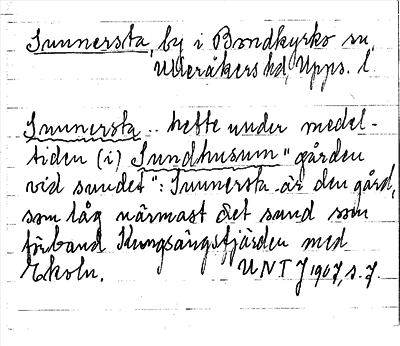 Sunnersta, by i Bondkyrko sn,
Ulleråkers hd, Upps. l.
Sunnersta .. hette under medel-
tiden (i) Sundhusum "gården
vid sundet": Sunnersta är den gård,
som låg närmast det sund som
förband Kungsängsfjärden med
Ekoln. UNT 7 1967, s. 7.